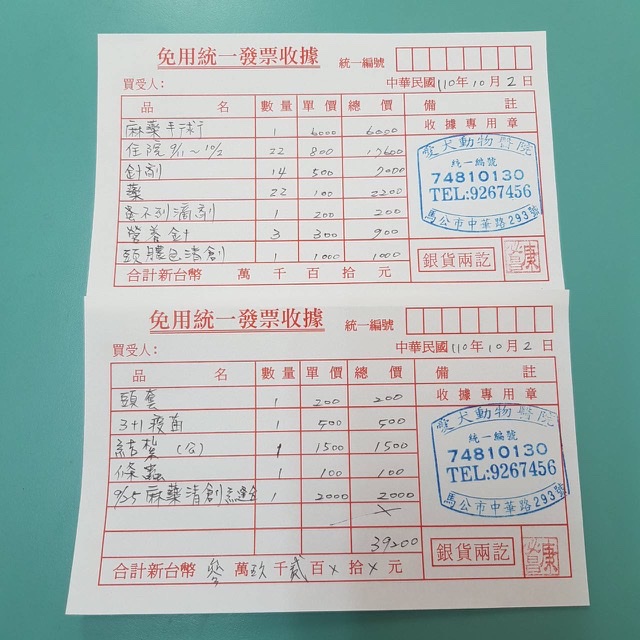 免用統一發票收據 統一編號
買受人： 中華民國110年10月2日
品名 數量 單價 總價 備註
收據專用章
麻藥手術 1 6000 6000
住院9/11~10/2 22 800 17600
針劑 14 500 7000
藥 22 100 2200
蚤不到滴劑 1 200 200
營養針 3 300 900
頭膿包清創 1 1000 1000
愛犬動物醫院
統一編號
74810130
TEL:9267456
馬公市中華路293號
銀貨兩訖
合計新台幣 萬 千 百 拾 元
免用統一發票收據 統一編號
買受人： 中華民國110年10月2日
品名 數量 單價 總價 備註
收據專用章
頭套 1 200 200
3+1疫苗 1 500 500
結紮(公) 1 1500 1500
條蟲 1 100 100
9/25麻藥清創 1 2000 2000
39200
愛犬動物醫院
統一編號
74810130
TEL:9267456
馬公市中華路293號
銀貨兩訖
合計新台幣 參萬玖千貳百×拾×元